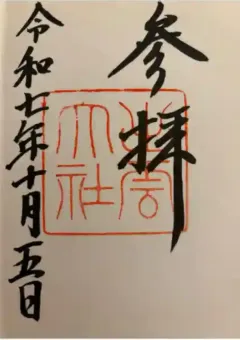 参拝
出雲
大社
令和七年十月五日